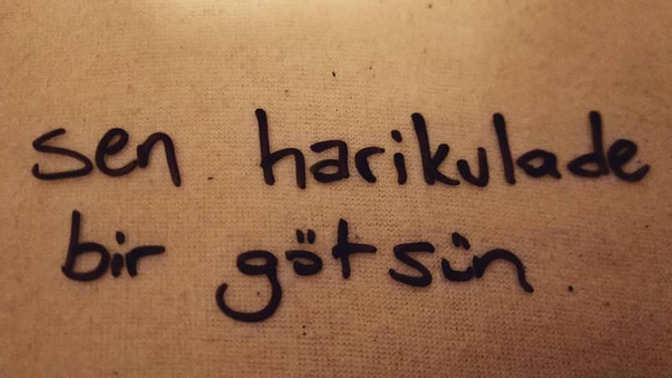 sen harikulade
bir götsün.